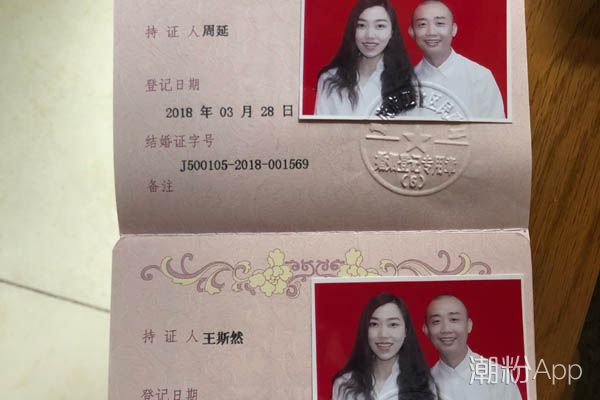 持 证 人 周延
登记日期
2018 年 03 月 28 日
结婚证字号
J500105-2018-001569
备注
婚姻登记专用章
(6)
持 证 人 王斯然
登记日期
潮粉App